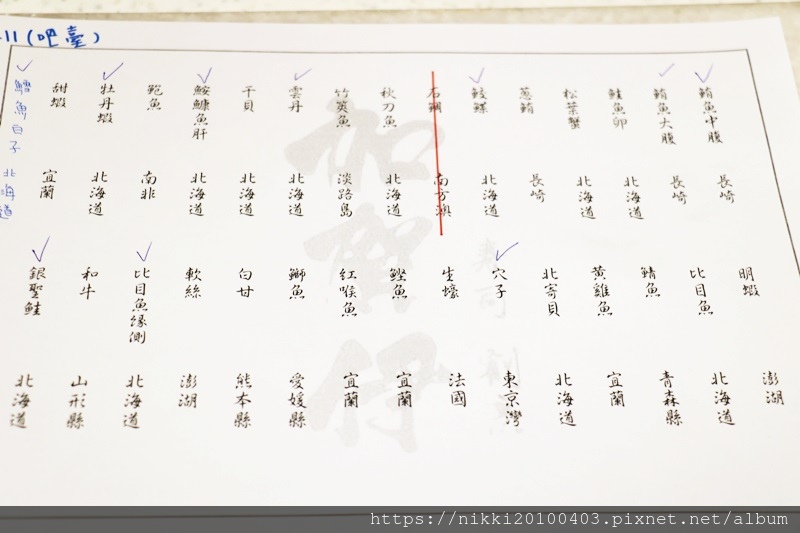 11(吧臺)
鮪魚中腹 長崎
鮪魚大腹 長崎
鮭魚卵 北海道
松葉蟹 北海道
蔥鮪 長崎
鮫鰈 北海道
石鯛 南方澳
秋刀魚 北海道
竹筴魚 淡路島
雲丹 北海道
干貝 北海道
鮟鱇魚肝 北海道
鮑魚 南非
牡丹蝦 北海道
甜蝦 宜蘭
鱈魚白子 北海道
明蝦 澎湖
比目魚 北海道
鯖魚 青森縣
黃雞魚 宜蘭
北寄貝 北海道
穴子 東京灣
生蠔 法國
鰹魚 宜蘭
紅喉魚 宜蘭
鰤魚 愛媛縣
白甘 熊本縣
軟絲 澎湖
比目魚緣側 北海道
和牛 山形縣
銀聖鮭 北海道
加賀伊
https://nikki20100403.pixnet.net/album